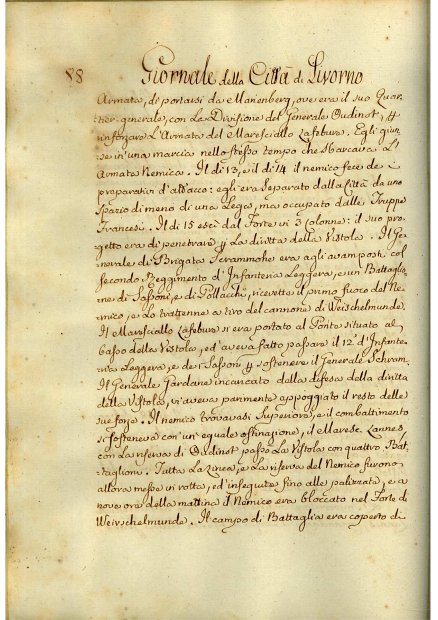 88 Giornale della Città di Livorno
Armata, di portarsi da Marienberg, ove era il suo Quar-
tier-generale, con la Divisione del Generale Oudinot,
rinforzare L'Armata del Maresciallo Lafebure. Egli giun-
se in una marcia nello stesso tempo che sbarcava L'
Armata Nemica. Il dì 13, e il dì 14 il nemico fece de i
preparativi d'attacco: egli era separato dalla Città da uno
spazio di meno di una Lega, ma occupato dalle Truppe
Francesi. Il dì 15 escì dal Forte in 3 Colonne: il suo pro-
getto era di penetrare la diritta della Vistola. Il Ge-
nerale di Brigata Scrammohe era agli avamposti col
secondo Reggimento d'Infanteria Leggera, e un Battaglio-
ne di Sassoni, e di Pollacchi, ricevette il primo fuoco del Ne-
mico, e lo trattenne a tiro del cannone di Weischelmunde.
Il Maresciallo Lafebure si era portato al Ponte situato al
basso della Vistola, ed aveva fatto passare il 12° d'Infante-
ria Leggera, e de i Sassoni sostenere il Generale Schram.
Il Generale Gardane incaricato dalla difesa della diritta
della Vistola, vi aveva parimente appoggiato il resto delle
sue forze. Il nemico trovavasi Superiore, e il combattimento
si sosteneva con un'eguale ostinazione, il Maresc. Lannes
con la riserva di Oudinot passò la Vistola con quattro Bat-
taglioni. Tutta la Linea, e la riserva del Nemico furono
allora messe in rotta, ed inseguite fino alle palizzate, e a
nove ore della mattina il Nemico era bloccato nel Forte di
Weirschelmunde. Il campo di Battaglia era coperto di